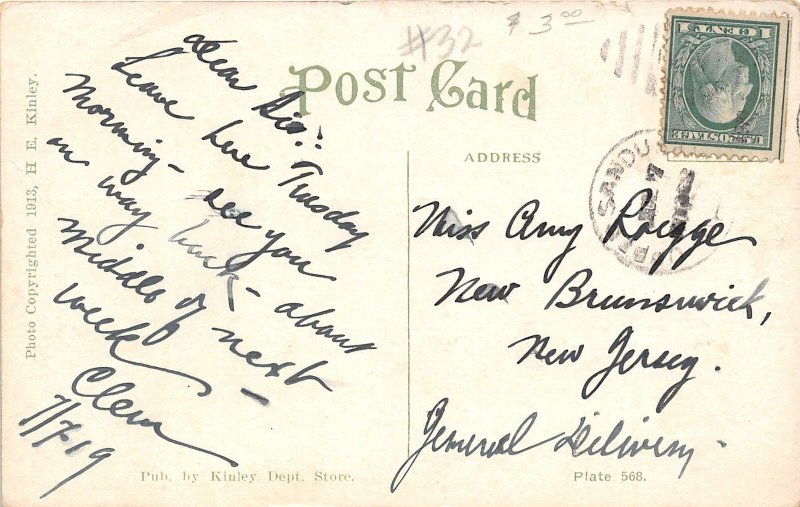 #32
$ 3.00
Post Card
ADDRESS
Photo Copyrighted 1913, H E. Kinley.
Dear Sis!:
Leave here Tuesday
Morning - see you
on way back - about
Middle of next
week -
Clem
7/7-19
Miss Amy
New Brunswick,
New Jersey.
General Delivery
SANDUS
1 CENT 1
U.S. POSTAGE
Pub. by Kinley Dept. Store.
Plate 568.